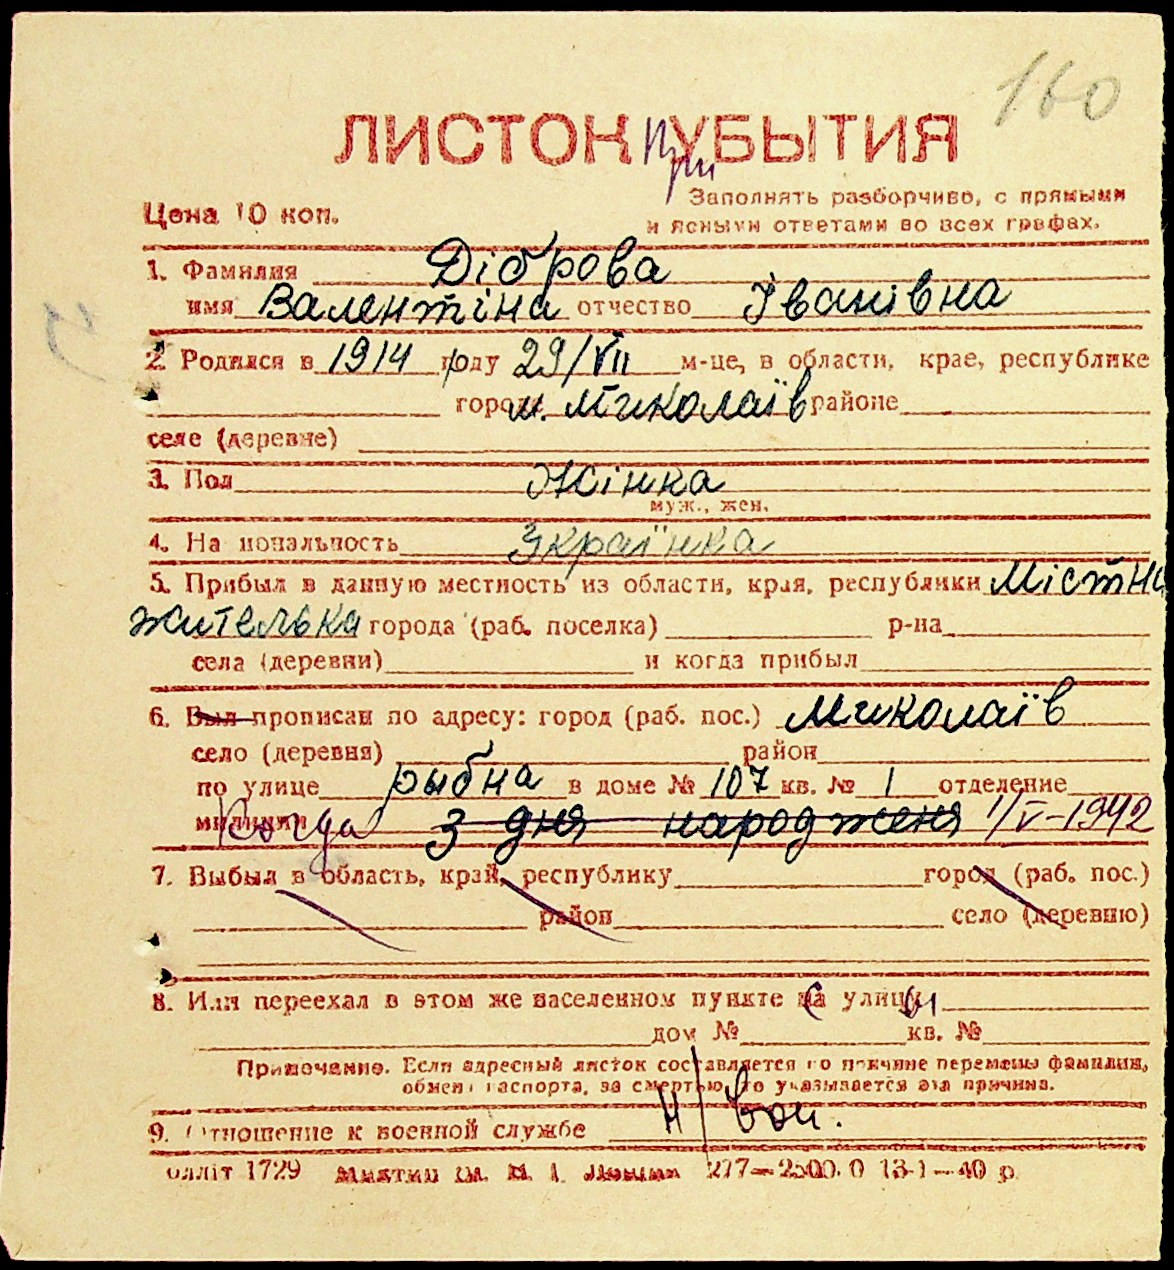 160
ЛИСТОК При УБЫТИЯ
Цена 10 коп.
Заполнять разборчиво, с прямыми
и ясными ответами во всех графах.
1. Фамилия Діброва
имя Валентіна отчество Іванівна
2. Родился в 1914 году 29/VII м-це, в области, крае, республике
городе м. Миколаїв районе
селе (деревне)
3. Пол Жінка
муж., жен.
4. Национальность Українка
5. Прибыл в данную местность из области, края, республики Містна
жителька города (раб. поселка) р-на
села (деревни) и когда прибыл
6. Был прописан по адресу: город (раб. пос.) Миколаїв
село (деревня) район
по улице рыбна в доме № 107 кв. № 1 отделение
милиции Когда з дня народженя 1/V-1942
7. Выбыл в область, край, республику город (раб. пос.)
район село (деревню)
8. Или переехал в этом же населенном пункте на улицу
дом № кв. №
Примечание. Если адресный листок составляется по причине перемены фамилии,
обмена паспорта, за смертью, то указывается эта причина.
9. Отношение к военной службе н/вои.
облліт 1729 277—2500.0 13-1—40 р.